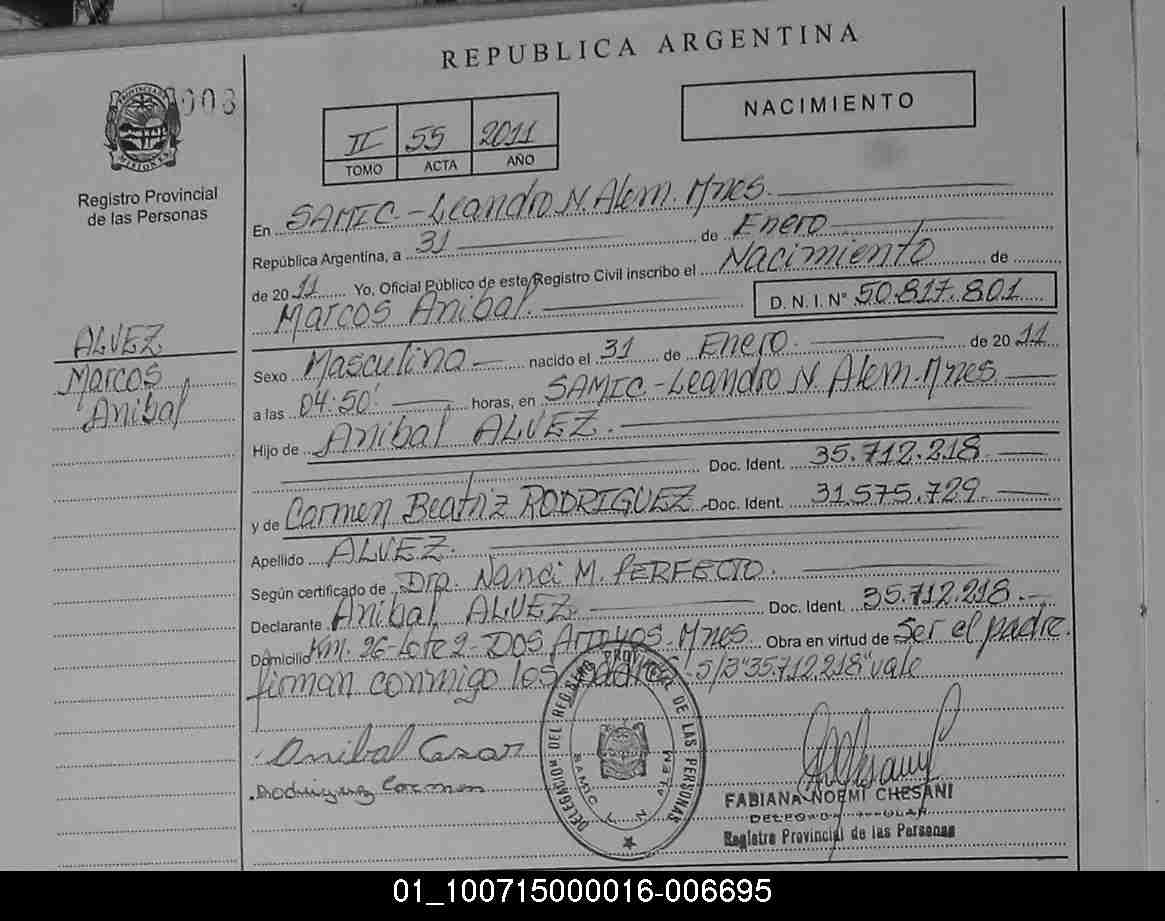 REPUBLICA ARGENTINA
008
NACIMIENTO
II 55 2011
TOMO ACTA AÑO
PROVINCIA DE MISIONES
Registro Provincial
de las Personas
En SAMIC - Leandro N. Alem. Mnes.
República Argentina, a 31 de Enero
de 2011 Yo, Oficial Público de este Registro Civil inscribo el Nacimiento de
Marcos Anibal. D. N. I. N° 50.817.801
ALVEZ
Marcos
Anibal
Sexo Masculino nacido el 31 de Enero. de 2011
a las 04:50' horas, en SAMIC - Leandro N. Alem. Mnes
Hijo de Anibal ALVEZ.
Doc. Ident. 35.712.218
y de Carmen Beatriz RODRIGUEZ Doc. Ident. 31.575.729
Apellido ALVEZ.
Según certificado de Dra. Nanci M. PERFECTO.
Declarante Anibal ALVEZ Doc. Ident. 35.712.218.
Domicilio Km. 26 - Lote 2 - DOS Arroyos. Mnes Obra en virtud de Ser el padre.
firman conmigo los padres. S/B "35.712.218" vale
Anibal Cesar
Rodriguez Carmen
DELEGACION DEL REGISTRO PROVINCIAL DE LAS PERSONAS
SAMIC
FABIANA NOEMI CHESANI
DELEGADA TITULAR
Registro Provincial de las Personas
01_100715000016-006695